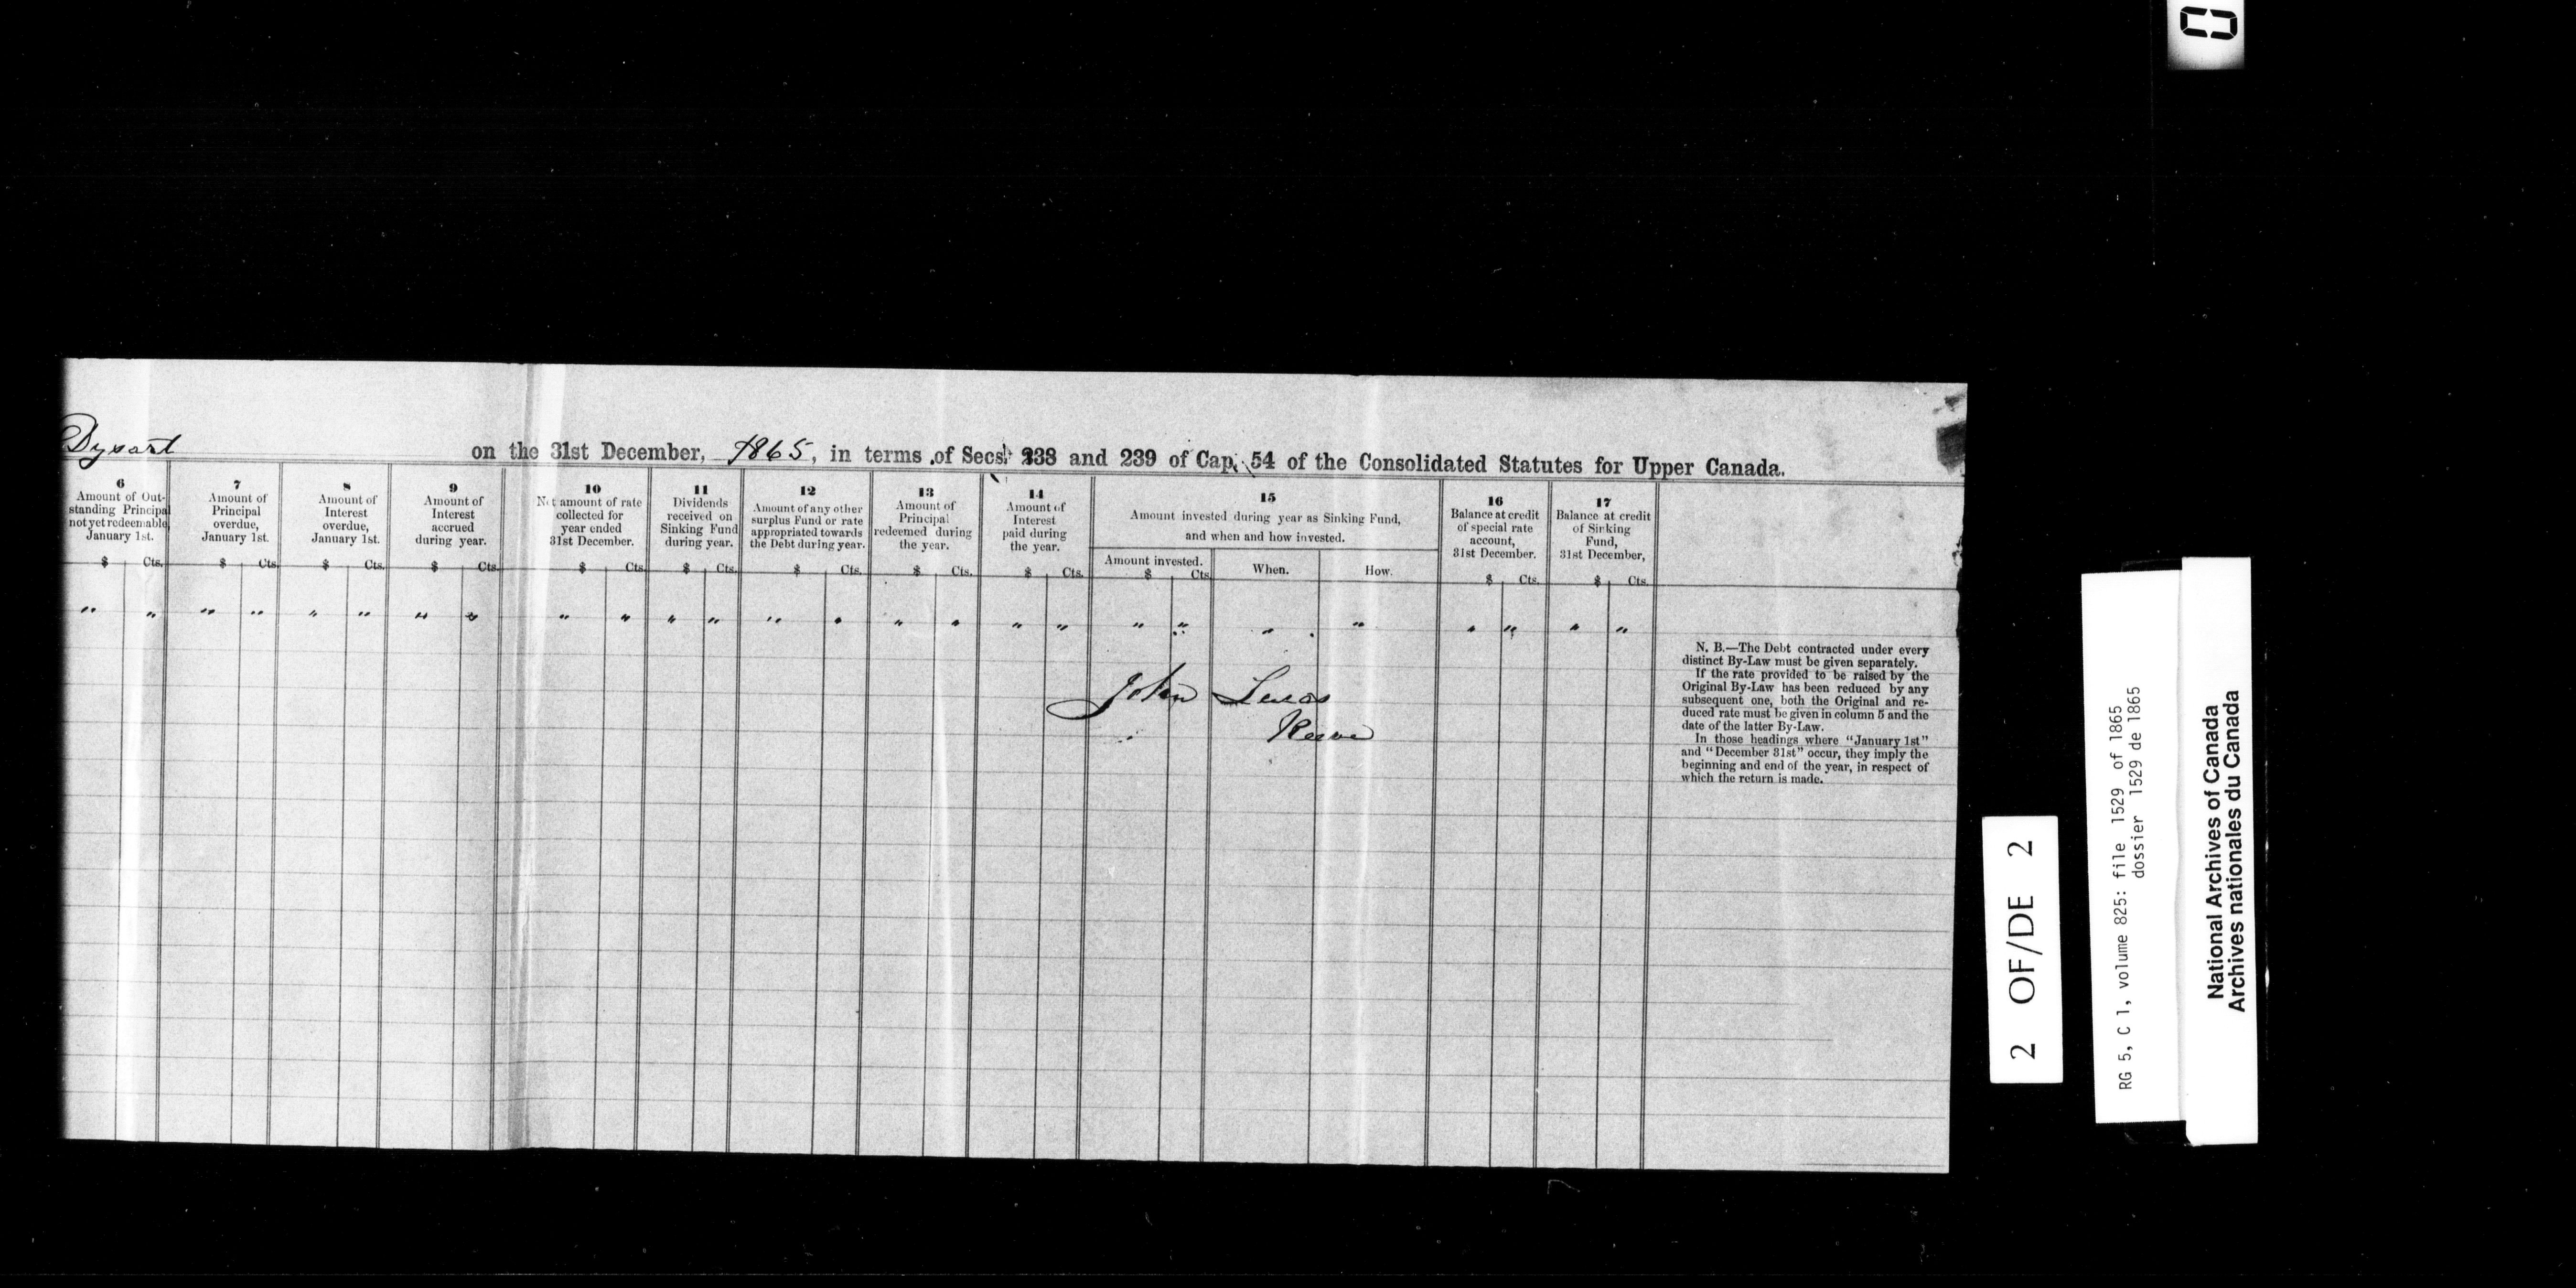 Dysart on the 31st December, 1865, in terms of Secs. 238 and 239 of Cap. 54 of the Consolidated Statutes for Upper Canada.
6
Amount of Out-
standing Principal
not yet redeemable,
January 1st.
$ Cts.
7
Amount of
Principal
overdue,
January 1st.
$ Cts.
8
Amount of
Interest
overdue,
January 1st.
$ Cts.
9
Amount of
Interest
accrued
during year.
$ Cts.
10
Net amount of rate
collected for
year ended
31st December.
$ Cts.
11
Dividends
received on
Sinking Fund
during year.
$ Cts.
12
Amount of any other
surplus Fund or rate
appropriated towards
the Debt during year.
$ Cts.
13
Amount of
Principal
redeemed during
the year.
$ Cts.
14
Amount of
Interest
paid during
the year.
$ Cts.
15
Amount invested during year as Sinking Fund,
and when and how invested.
Amount invested.
$ Cts.
When.
How.
16
Balance at credit
of special rate
account,
31st December.
$ Cts.
17
Balance at credit
of Sinking
Fund,
31st December,
$ Cts.
" " " " " " " " " " " " " " " " " " " " " " " " " "
John Lucas
Reeve
N. B.—The Debt contracted under every
distinct By-Law must be given separately.
If the rate provided to be raised by the
Original By-Law has been reduced by any
subsequent one, both the Original and re-
duced rate must be given in column 5 and the
date of the latter By-Law.
In those headings where "January 1st"
and "December 31st" occur, they imply the
beginning and end of the year, in respect of
which the return is made.
2 OF/DE 2
RG 5, C 1, volume 825: file 1529 of 1865
dossier 1529 de 1865
National Archives of Canada
Archives nationales du Canada